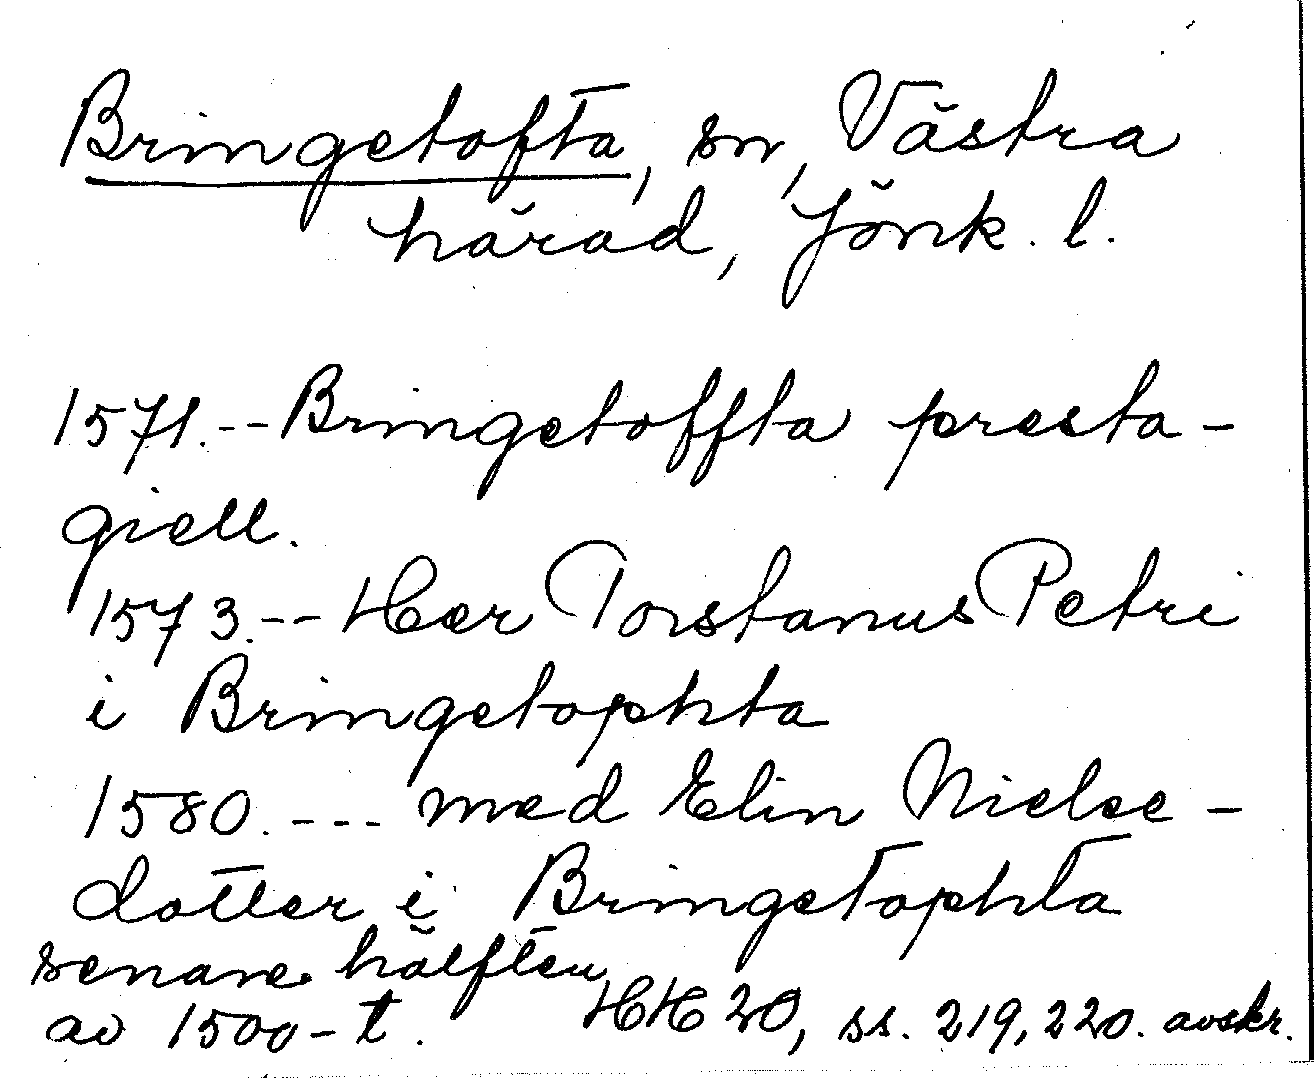 Bringetofta, sn, Västra
härad, Jönk. l.
1571.--Bringetoffta presta-
giell.
1573.--Her Torstanus Petri
i Bringetophta
1580.--- med Elin Nielse-
dotter i Bringetophta
senare hälften
av 1500-t. HH 20, ss. 219, 220. avskr.